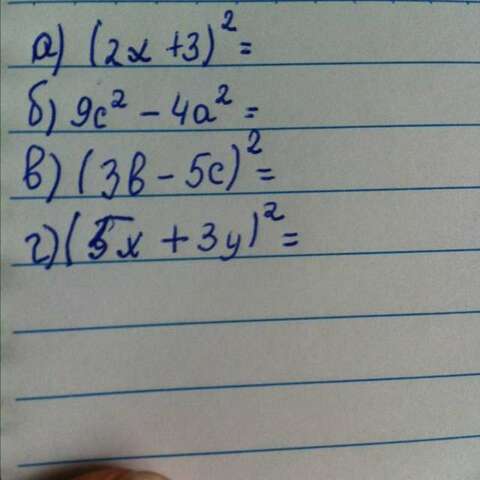 а) (2x+3)²=
б) 9c²-4a²=
в) (3b-5c)²=
г) (5x+3y)²=